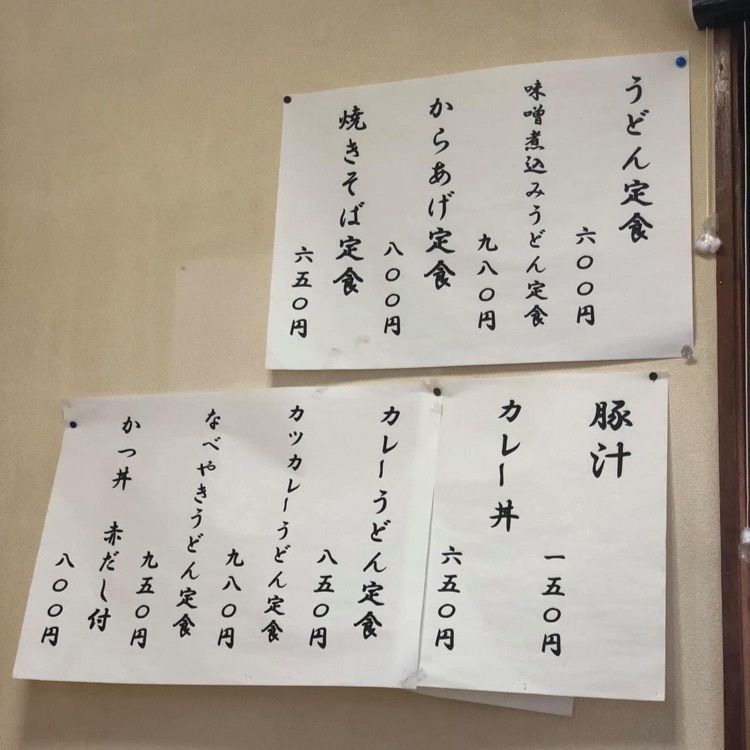 うどん定食
六〇〇円
味噌煮込みうどん定食
九八〇円
からあげ定食
八〇〇円
焼きそば定食
六五〇円
豚汁
一五〇円
カレー丼
六五〇円
カレーうどん定食
八五〇円
カツカレーうどん定食
九八〇円
なべやきうどん定食
九五〇円
かつ丼 赤だし付
八〇〇円